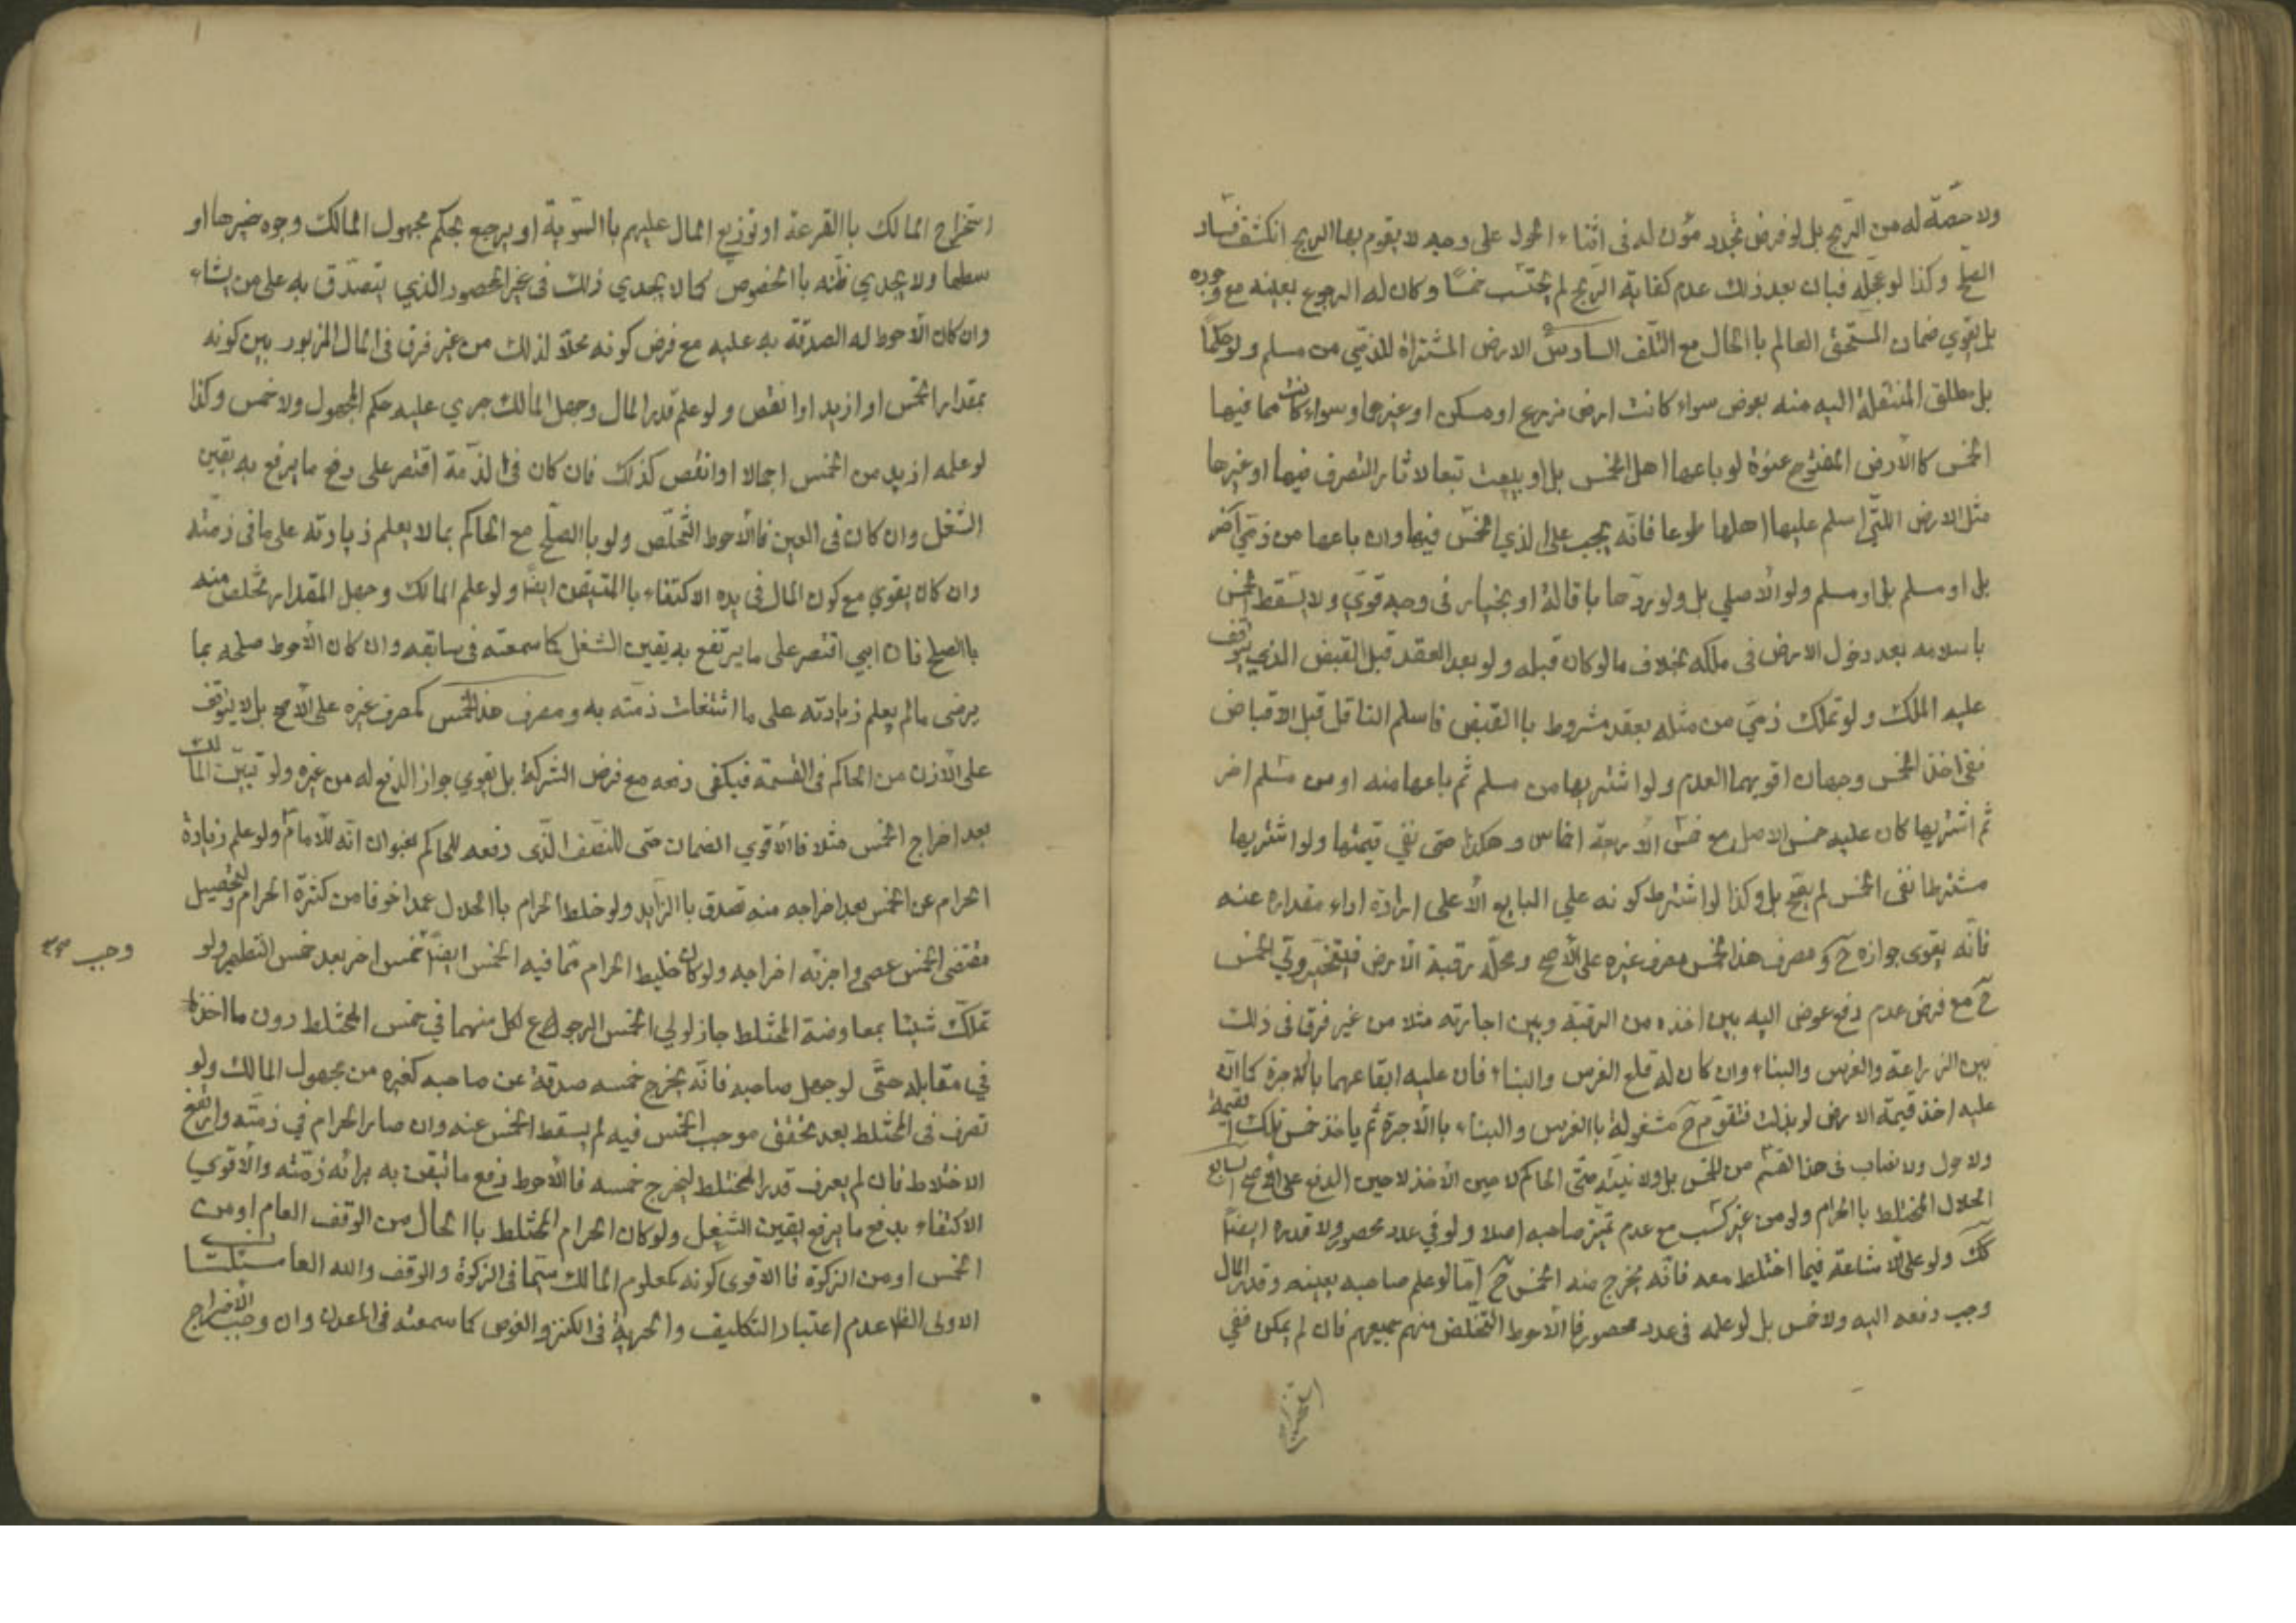 ولا حصّة له من الرّبح بل لو فرض تجدد مؤن له فى اثناء الحول على وجه لا يقوم بها الربح انكشف فساد
الصلح وكذا لو عجله فبان بعد ذلك عدم كفاية الربح لم يحتسب خمسًا وكان له الرجوع بعينه مع وجوده
بل يقوي ضمان المستحق العالم باالحال مع التلف السادس الارض المشتراة للذمّي من مسلم ولو حكمًا
بل مطلق المنتقلة اليه منه بعوض سواء كانت ارض مزرع او مسكن او غيرها وسواء كانت مما فيها
الخمس كاالأرض المفتوح عنوة لو باعها اهل الخمس بل او بيعت تبعا لاثار التصرف فيها او غيرها
مثل الارض اللتي اسلم عليها اهلها طوعا فانّه يجب على الذي الخمس فيها وان باعها من ذمّي آخر
بل او مسلم بل او مسلم ولو الأصلي بل ولو ردّها باقالة او بخيار فى وجه قوّي ولا يسقط الخمس
باسلامه بعد دخول الارض فى ملكه بخلاف ما لو كان قبله ولو بعد العقد قبل القبض الذي يتوقف
عليه الملك ولو تملك ذمّي من مثله بعقد مشروط باالقبض فاسلم الناقل قبل الاقباض
ففى اخذ الخمس وجهان اقويهما العدم ولو اشتريها من مسلم ثم باعها منه او من مسلم اخر
ثم اشتريها كان عليه خمس الاصل مع خمس الأربعة اخماس وهكذا حتى تفي قيمتها ولو اشتريها
مشترطا نفى الخمس لم يصح بل وكذا لو اشترط كونه علي البايع الأ على ارادة اداء مقداره عنه
فانّه يقوى جوازه ح و مصرف هذا الخمس مصرف غيره على الأصح ومحلّه رقبة الأرض فيتخير ولّي الخمس
ح مع فرض عدم دفع عوض اليه بين اخذه من الرقبة وبين اجارته مثلا من غير فرق فى ذلك
بين الزراعة والغرس والبناء وان كان له قلع الغرس والبناء فان عليه ابقاعهما باالاجرة كما انّه
عليه اخذ قيمة الارض لو بذلت فتقوّم ح مشغولة باالغرس والبناء باالأجرة ثم ياخذ خمس تلك القيمة
ولا حول ولا نصاب فى هذا القسم من الخمس بل ولا نيّة حتّى الحاكم لا حين الأخذ لا حين الدفع على الأصح السابع
الحلال المختلط باالحرام ولو من غير كسب مع عدم تميّز صاحبه اصلا ولو في عدد محصور ولا قدره ايضًا
كك ولو على الاشاعة فيما اختلط معه فانّه يخرج منه الخمس ح امّا لو علم صاحبه بعينه وقدر المال
وجب دفعه اليه ولا خمس بل لو علمه فى عدد محصور فاالأحوط التخلص منهم جميعهم فان لم يمكن ففي
استخراج المالك باالقرعة او توزيع المال عليهم باالسّوية او يرجع بحكم مجهول المالك وجوه خيرها او
سطها ولا يجدي ظنّه باالخصوص كما لا يجدي ذلك فى غير المحصور الذي يتصدّق به على من يشاء
وان كان الأحوط له الصدقة به عليه مع فرض كونه محلّا لذلك من غير فرق فى المال المزبور بين كونه
بمقدار الخمس او ازيد او انقص ولو علم قدر المال وجهل المالك جري عليه حكم المجهول ولا خمس وكذا
لو علمه ازيد من الخمس اجمالا او انقص كذلك فان كان فى الذّمة اقتصر على دفع ما يرفع به يقين
الشغل وان كان فى العين فاالأحوط التّخلّص ولو باالصلح مع الحاكم بما لا يعلم زيادته على ما فى ذمّته
وان كان يقوي مع كون المال فى يده الاكتفاء باالمتيقن ايضًا ولو علم المالك وجهل المقدار تخلص منه
باالصلح فان ابي اقتصر على ما يرتفع به يقين الشغل كما سمعته فى سابقه وان كان الأحوط صلحه بما
يرضى مالم يعلم زيادته على ما اشتغلت ذمّته به ومصرف هذا الخمس كمصرف غيره على الأصح بل لا يتوقف
على الأذن من الحاكم فى القسمة فيكفى دفعه مع فرض الشركة بل يقوي جواز الدفع له من غيره ولو تبيّن المالك
بعد اخراج الخمس مثلا فاالأقوي الضمان حتى للنصف الّذى دفعه للحاكم بعنوان انّه للأمام ولو علم زيادة
الحرام عن الخمس بعد اخراجه منه تصدق باالزايد ولو خلط الحرام باالحلال عمدا خوفا من كثرة الحرام ولتحصيل
مقتضى الخمس عصى واجزئه اخراجه ولو كان خليط الحرام ممّا فيه الخمس ايضًا خمس اخر بعد خمس التطهير ولو
وجب صح
تملّك شيئا بمعاوضة المختلط جاز لولي الخمس الرجوع على كل منهما في خمس المختلط دون ما اخذه
في مقابله حتّى لو جهل صاحبه فانّه يخرج خمسه صدقة عن صاحبه كغيره من مجهول المالك ولو
تصرف فى المختلط بعد تحقق موجب الخمس فيه لم يسقط الخمس عنه وان صار الحرام في ذمّته وارتفع
الاختلاط فان لم يعرف قدر المختلط ليخرج خمسه فاالأحوط دفع ما تيقن به برائه ذمّته والأقوي
الاكتفاء بدفع ما يرفع يقين الشغل ولو كان الحرام المختلط باالحال من الوقف العام او من
الخمس او من الزكوة فاالاقوى كونه كمعلوم المالك سيّما فى الزكوة والوقف والله العا
الاولى الظ عدم اعتبار التكليف والحرية فى الكنز والغوص كما سمعته فى المعدن وان وجب الأخراج